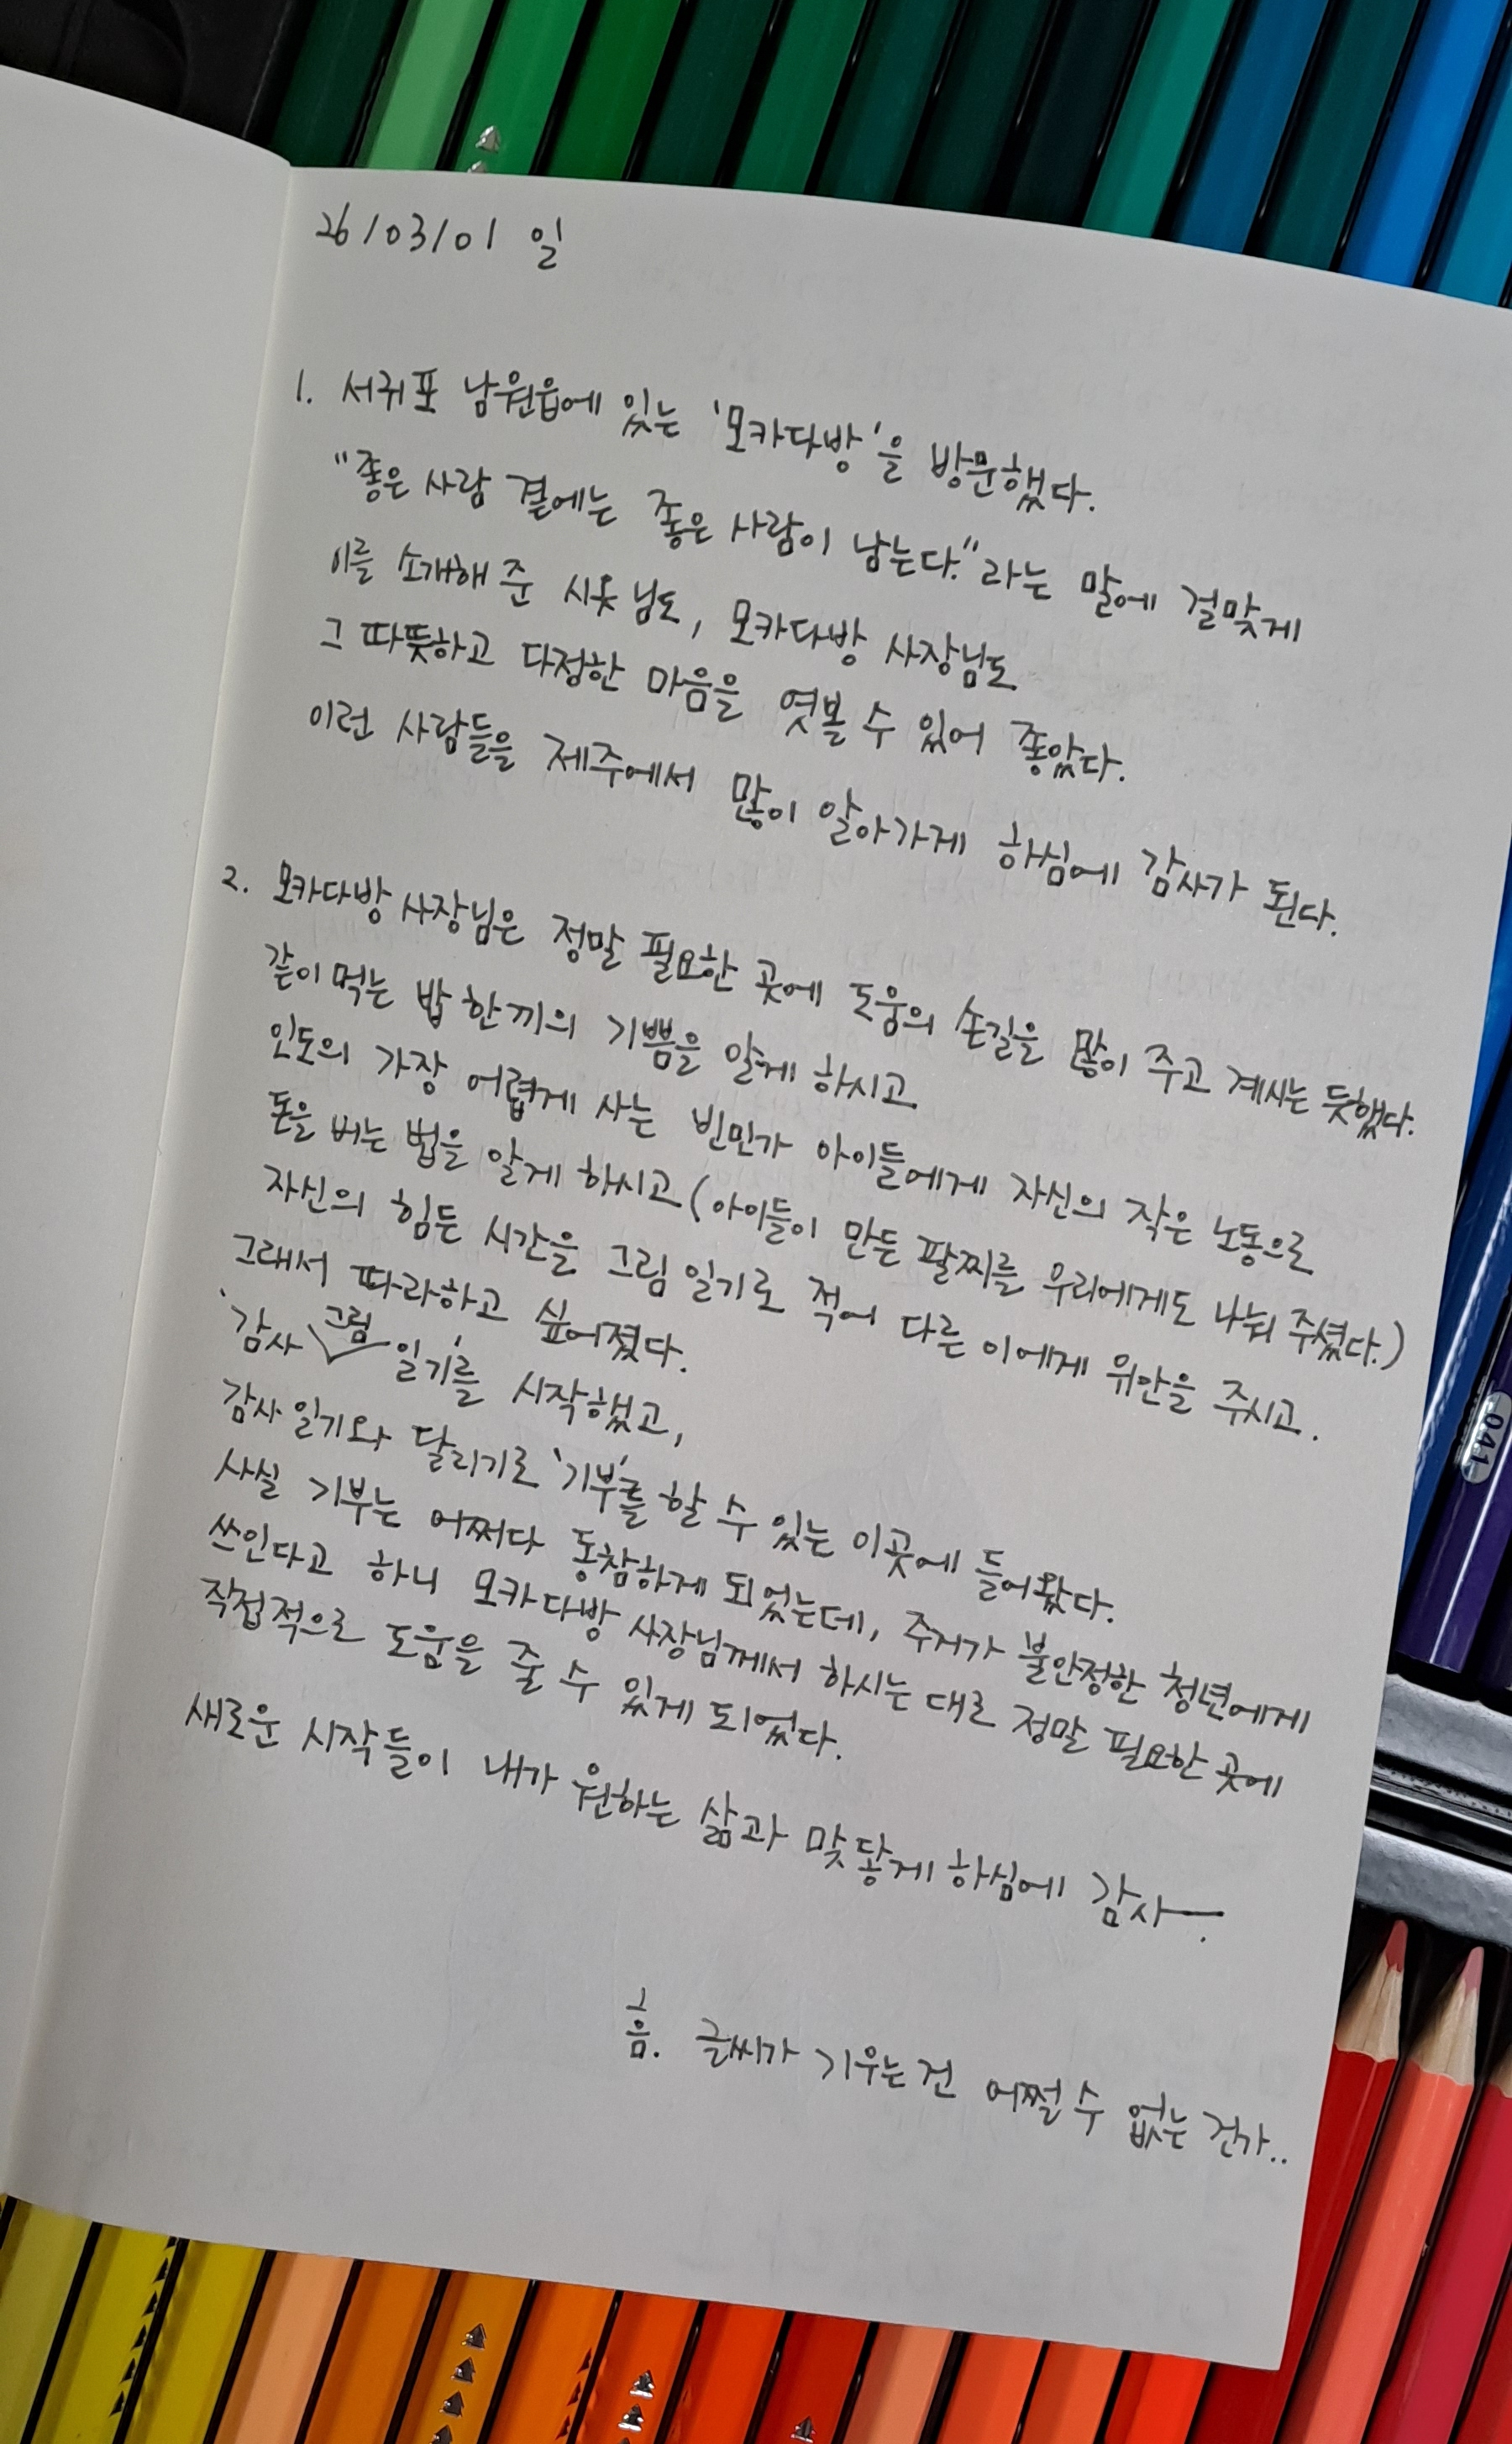 26/03/01 일
1. 서귀포 남원읍에 있는 '모카다방'을 방문했다.
"좋은 사람 곁에는 좋은 사람이 남는다."라는 말에 걸맞게
이를 소개해 준 시옷님도, 모카다방 사장님도
그 따뜻하고 다정한 마음을 엿볼 수 있어 좋았다.
이런 사람들을 제주에서 많이 알아가게 하심에 감사가 된다.
2. 모카다방 사장님은 정말 필요한 곳에 도움의 손길을 많이 주고 계시는 듯했다.
같이 먹는 밥 한끼의 기쁨을 알게 하시고
인도의 가장 어렵게 사는 빈민가 아이들에게 자신의 작은 노동으로
돈을 버는 법을 알게 하시고(아이들이 만든 팔찌를 우리에게도 나눠 주셨다.)
자신의 힘든 시간을 그림 일기로 적어 다른 이에게 위안을 주시고.
그래서 따라하고 싶어졌다.
'감사 그림 일기'를 시작했고,
감사 일기와 달리기로 '기부'를 할 수 있는 이곳에 들어왔다.
사실 기부는 어쩌다 동참하게 되었는데, 주거가 불안정한 청년에게
쓰인다고 하니 모카다방 사장님께서 하시는 대로 정말 필요한 곳에
직접적으로 도움을 줄 수 있게 되었다.
새로운 시작들이 내가 원하는 삶과 맞닿게 하심에 감사—.
흠. 글씨가 기우는건 어쩔 수 없는 건가..
041